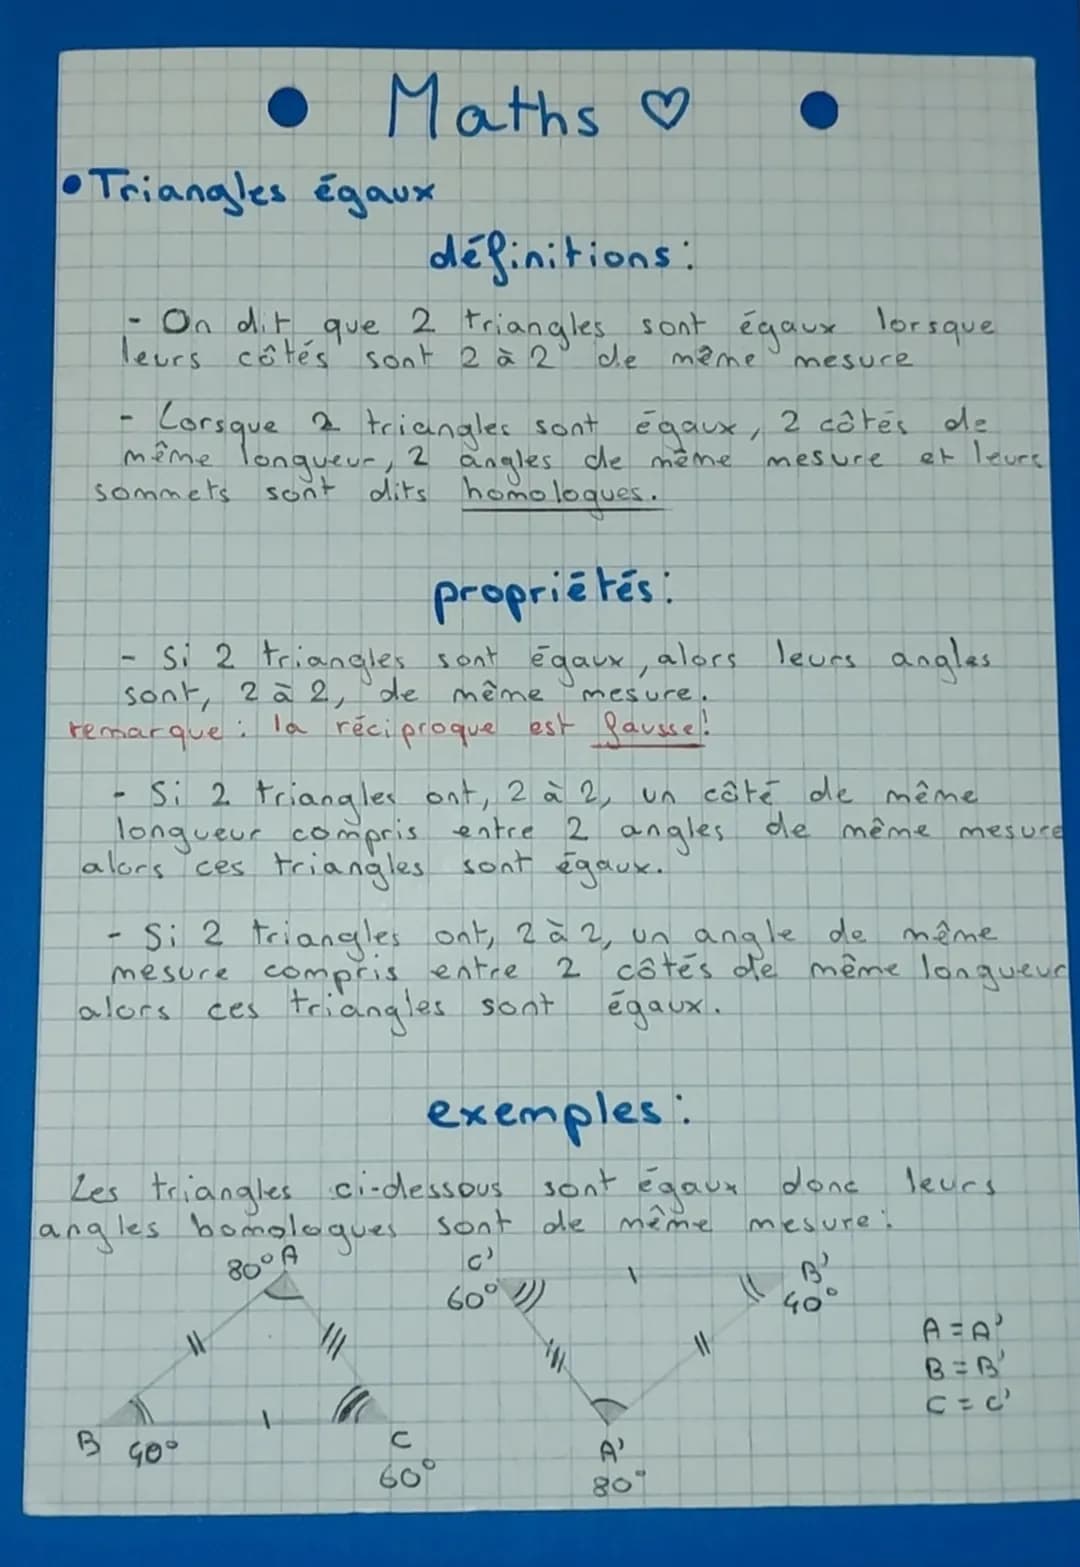 Maths ♡
• Triangles égaux
définitions :
- On dit que 2 triangles sont égaux lorsque
leurs côtés sont 2 à 2 de même mesure
- Lorsque 2 triangles sont égaux, 2 côtés de
même longueur, 2 angles de même mesure et leurs
sommets sont dits homologues.
propriétés :
- Si 2 triangles sont égaux, alors leurs angles
sont, 2 à 2, de même mesure.
remarque : la réciproque est fausse!
- Si 2 triangles ont, 2 à 2, un côté de même
longueur compris entre 2 angles de même mesure
alors ces triangles sont égaux.
- Si 2 triangles ont, 2 à 2, un angle de même
mesure compris entre 2 côtés de même longueur
alors ces triangles sont égaux.
exemples :
Les triangles ci-dessous sont égaux donc leurs
angles homologues sont de même mesure :
80° A
C'
60°
B'
40°
A = A'
B = B'
C = C'
B 40°
C
60°
A'
80°